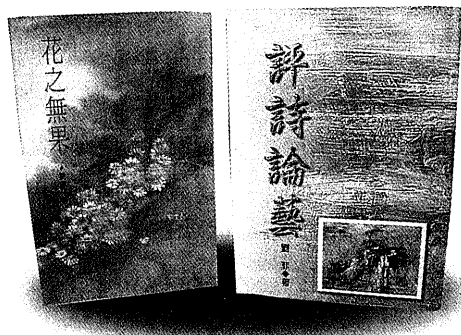 花之無果
評詩論藝